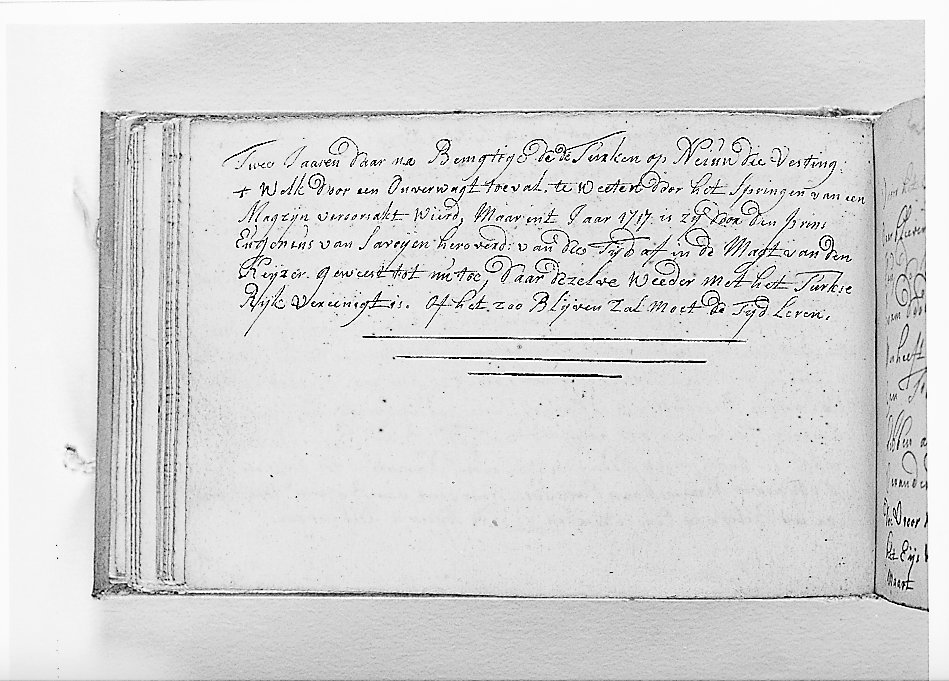 Twee Jaaren daar na Bemagtigde de Turken op Nieuw die Vesting:
+ Welk door een Onverwagt toeval. te Weeten door het Springen van een
Magzyn veroorsakt Wierd, Maar int Jaar 1717. is zy door den prins
Eugenius van Savoyen heroverd: van die Tyd af in de Magt van den
Keyzer. geweest tot nu toe, daar dezelve Weeder Met het Turkse
Ryk Vereenigt is. Of het zoo Blyven Zal Moet de Tyd Leren.
van
heeft
van
Door
het Eijs
Maart